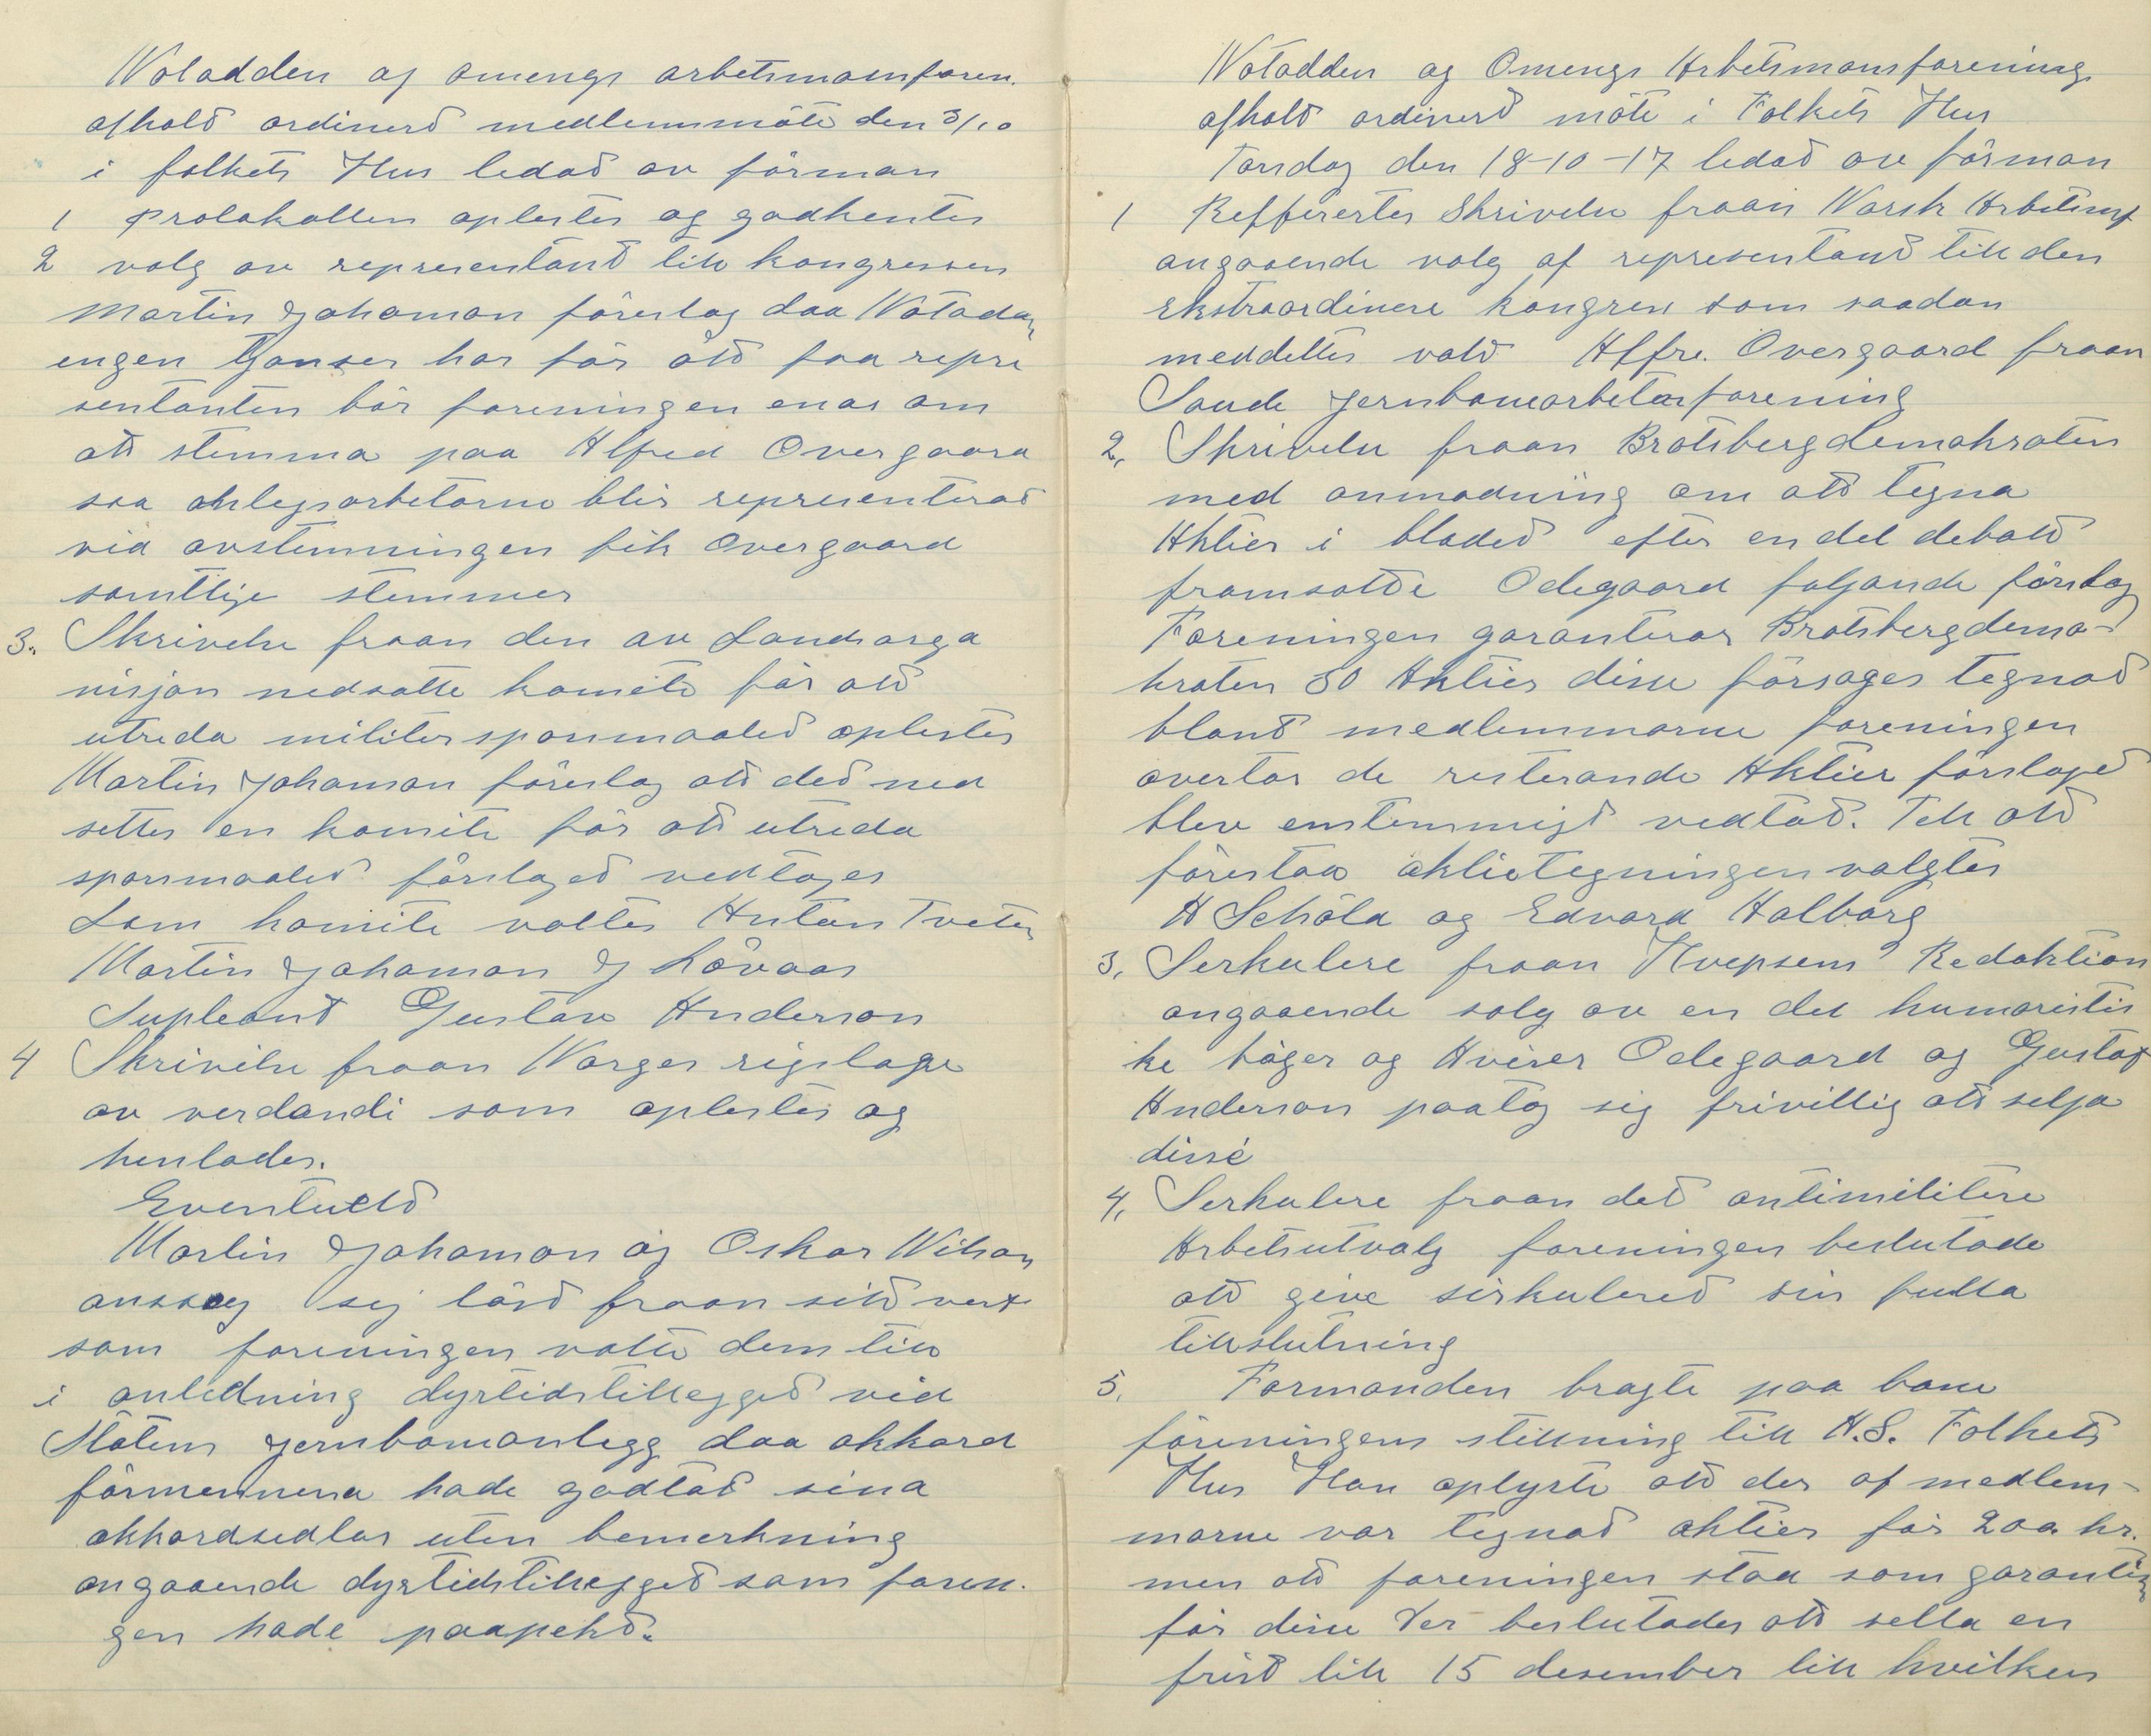 Notodden og omengs arbetsmansforen.
afhold ordinerd medlemmöte den 3/10
i folkets Hus ledad av förman
1 Protokollen oplestes og godkentes
2 valg av representant till kongressen
Martin Johanson föreslog daa Notodd
engen Janser har för att faa repre
sentanten bör foreningen enas om
att stemma paa Alfred Overgaard
saa anlegsarbetarne blir representerad
vid avstemningen fik Overgaard
samtlige stemmer
3. Skrivelse fraan den av Landsorga
nisjon nedsatte komite för att
utreda militerspörsmaaled oplestes
Martin Johanson föreslog att ded ned
settes en komite för att utreda
spörsmaaled förslaged vedtages
Som komite valtes Anton Tveten
Martin Johanson J Lövaas
Supleant Gustav Anderson
4 Skrivelse fraan Norges rigslage
av verdandi som oplestes og
henlades.
Eventuelt
Martin Johanson og Oskar Nilson
anssog sig löst fraan sitt verf
som foreningen valt dem till
i anledning dyrtidstillegged vid
Statens jernbaneanlegg daa akkord
förmennena hade godtad sina
akkordsedlar uten bemerkning
angaaende dyrtidstillegged som foren.
gen hade paapekt.
Notodden og Omengs Arbetsmansforening
afholt ordinerd möte i Folkets Hus
Torsdag den 18-10-17 ledad av förman
1 Reffererties Skrivelse fraan Norsk Arbetsmf
angaaende valg af representant till den
Ekstraordinere kongress som saadan
meddeltes vald Alfre. Overgaard fraan
Sande Jernbanearbetarforening
2, Skrivelse fraan Bratsbergdemokraten
med anmodning om att tegna
Aktier i bladed efter en del debatt
framsatte Odegaard foljande förslag
Foreningen garanterar Bratsbergdemo-
kraten 50 Aktier disse försøges tegnad
blant medlemmarne foreningen
overtar de resterande Aktier förslaged
blev enstemmigt vedtad. Till att
förestaa aktietegningen valgtes
A Schöld og Edvard Halborg
3, Serkulere fraan "Hvepsens" Redaktion
angaaende salg av en del humoristis
ke böger og Aviser Odegaard og Gustaf
Anderson paatog sig frivillig att selja
disse
4, Serkulere fraan det antimilitere
Arbetsutvalg foreningen beslutade
att give sirkulered sin fulla
tillslutning
5, Formanden bragte paa bane
föreningens stillning till A.S. Folkets
Hus Han oplyste att der af medlem-
marne var tegnad aktier för 200 kr.
men att foreningen stod som garantist
för disse Der beslutades att setta en
frist till 15 desember till hvilken